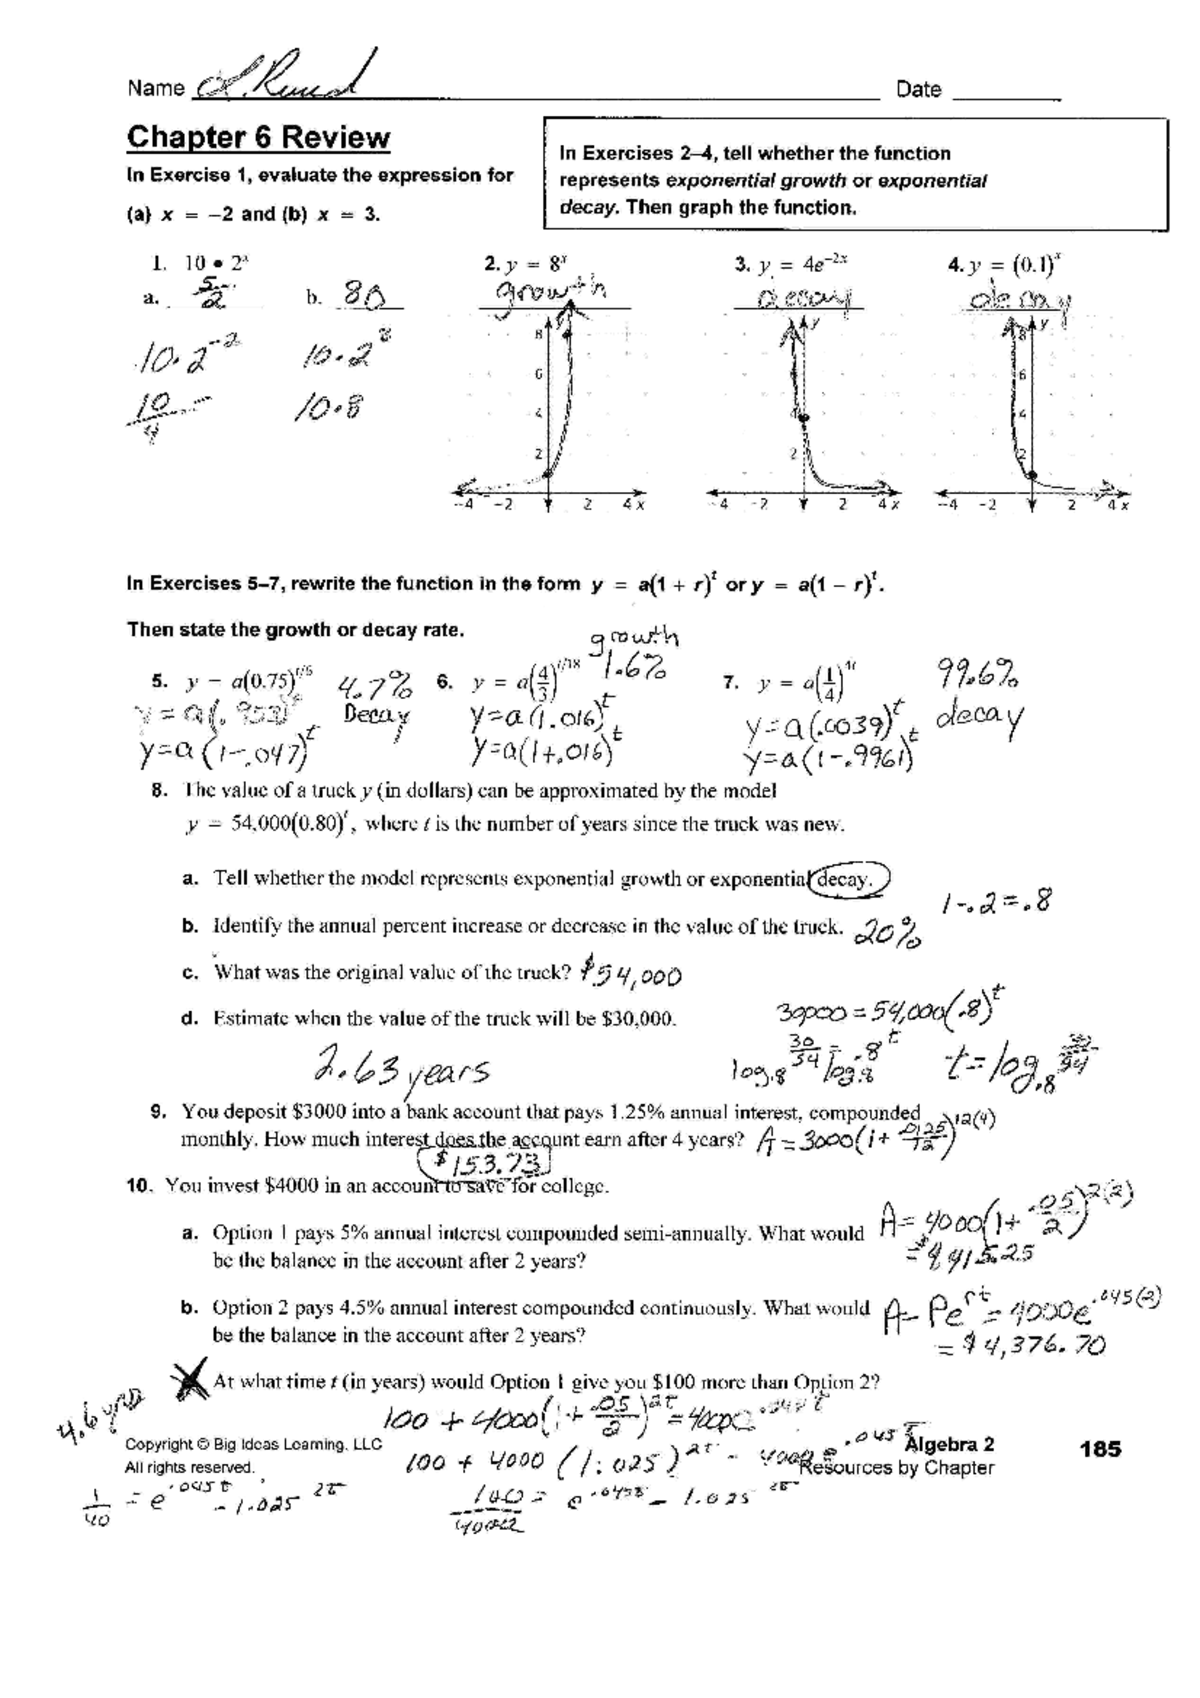 Name
Date
Chapter 6 Review
In Exercise 1, evaluate the expression for
(a) x = −2 and (b) x = 3.
In Exercises 2–4, tell whether the function
represents exponential growth or exponential
decay. Then graph the function.
1. 10 • 2ˣ
a. 5/2
b. 80
10·2⁻²
10·2³
10/4 =
10·8
2. y = 8ˣ
growth
3. y = 4e⁻²ˣ
decay
4. y = (0.1)ˣ
decay
y
8
6
4
2
−4 −2 2 4 x
y
4
2
−4 −2 2 4 x
y
8
6
4
2
−4 −2 2 4 x
In Exercises 5–7, rewrite the function in the form y = a(1 + r)ᵗ or y = a(1 − r)ᵗ.
Then state the growth or decay rate.
5. y − a(0.75)^(t/6) 4.7%
y = a(.953)ᵗ Decay
y=a(1−.047)ᵗ
growth
6. y = a(4/3)^(t/18) 1.6%
y=a(1.016)ᵗ
y=a(1+.016)ᵗ
7. y = a(1/4)^(4t) 99.6%
y=a(.0039)ᵗ decay
y=a(1−.9961)ᵗ
8. The value of a truck y (in dollars) can be approximated by the model
y = 54,000(0.80)ᵗ, where t is the number of years since the truck was new.
a. Tell whether the model represents exponential growth or exponential decay.
1−.2=.8
b. Identify the annual percent increase or decrease in the value of the truck. 20%
c. What was the original value of the truck? $54,000
d. Estimate when the value of the truck will be $30,000.
30000=54,000(.8)ᵗ
log.8 30/54 = log.8 .8ᵗ
t=log.8 30/54
2.63 years
9. You deposit $3000 into a bank account that pays 1.25% annual interest, compounded
monthly. How much interest does the account earn after 4 years? A=3000(1+.0125/12)^12(4)
$153.73
10. You invest $4000 in an account to save for college.
a. Option 1 pays 5% annual interest compounded semi-annually. What would
be the balance in the account after 2 years?
A=4000(1+.05/2)^2(2)
=$4,415.25
b. Option 2 pays 4.5% annual interest compounded continuously. What would
be the balance in the account after 2 years?
A− Pe^rt=4000e^.045(2)
=$4,376.70
At what time t (in years) would Option 1 give you $100 more than Option 2?
4.6 yrs
100 + 4000(1+.05/2)^2t =4000e^.045t
100 + 4000 (1.025)^2t − 4000e^.045t
1/40 = e^.045t −1.025^2t
100/4000 = e^.045t − 1.025^2t
Copyright © Big Ideas Learning, LLC
All rights reserved.
Algebra 2
Resources by Chapter
185